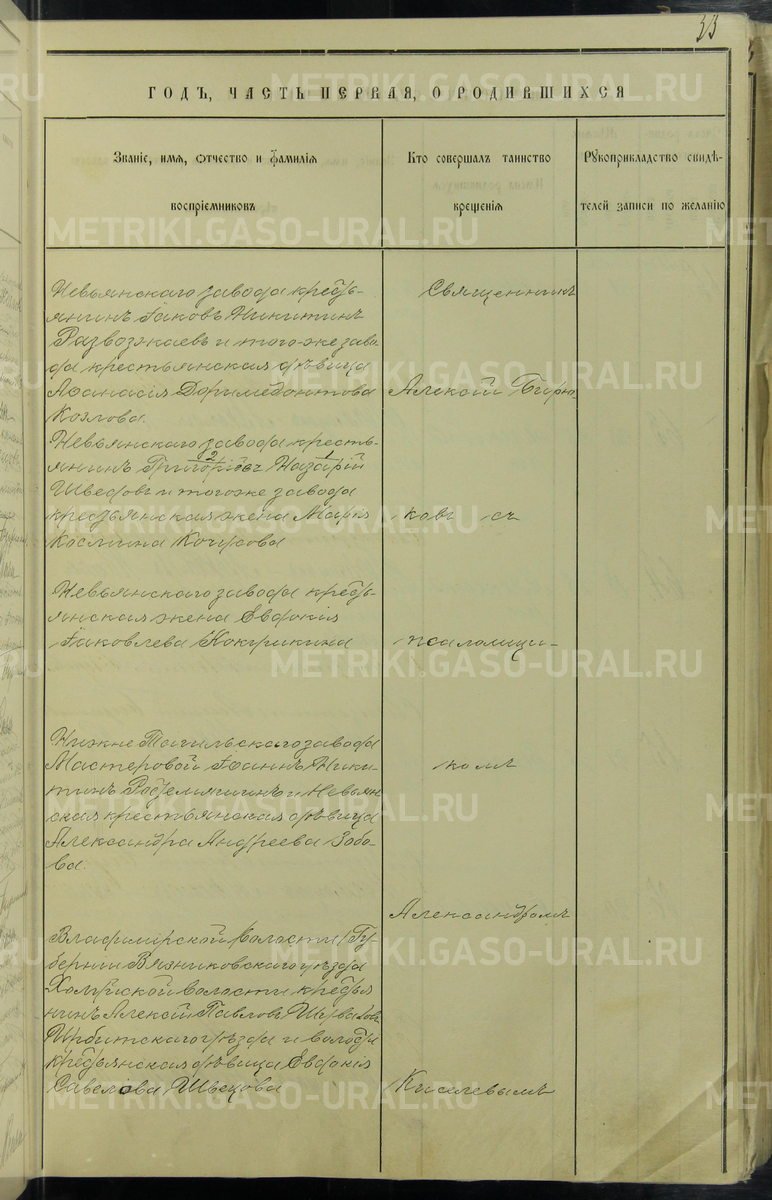 33
ГОДЪ, ЧАСТЬ ПЕРВАЯ, О РОДИВШИХСЯ
Званіе, имя, отчество и фамилія
воспріемниковъ
Кто совершалъ таинство
крещенія
Рукоприкладство свидѣ-
телей записи по желанію
Невьянскаго завода кресть-
янинъ Іаковъ Никитинъ
Развозжаевъ и того-же заво-
да крестьянская дѣвица
Аѳанасія Доримедонтова
Козлова.
Невьянскаго завода кресть-
2 1
янинъ Григоріевъ Назарій
Шведовъ и тогоже завода
крестьянская жена Марія
Космина Кочусова
Невьянскаго завода кресть-
янская жена Евдокія
Іаковлева Кокушкина
Нижне Тагильскаго завода
Мастеровой Іоаннъ Ники-
тинъ и Невьян
ская крестьянская дѣвица
Александра Андреева Зобо-
ва.
Владимірской волости/Гу-
берніи Вязниковскаго уѣзда
волости кресть
нинъ Алексѣй Павловъ
Ирбитскаго уѣзда и волости
крестьянская дѣвица Евдокія
Савелова Швецова
Священникъ
Алексѣй Бирю
ковъ съ
псаломщи-
комъ
Александромъ
Киселевымъ
METRIKI.GASO-URAL.RU